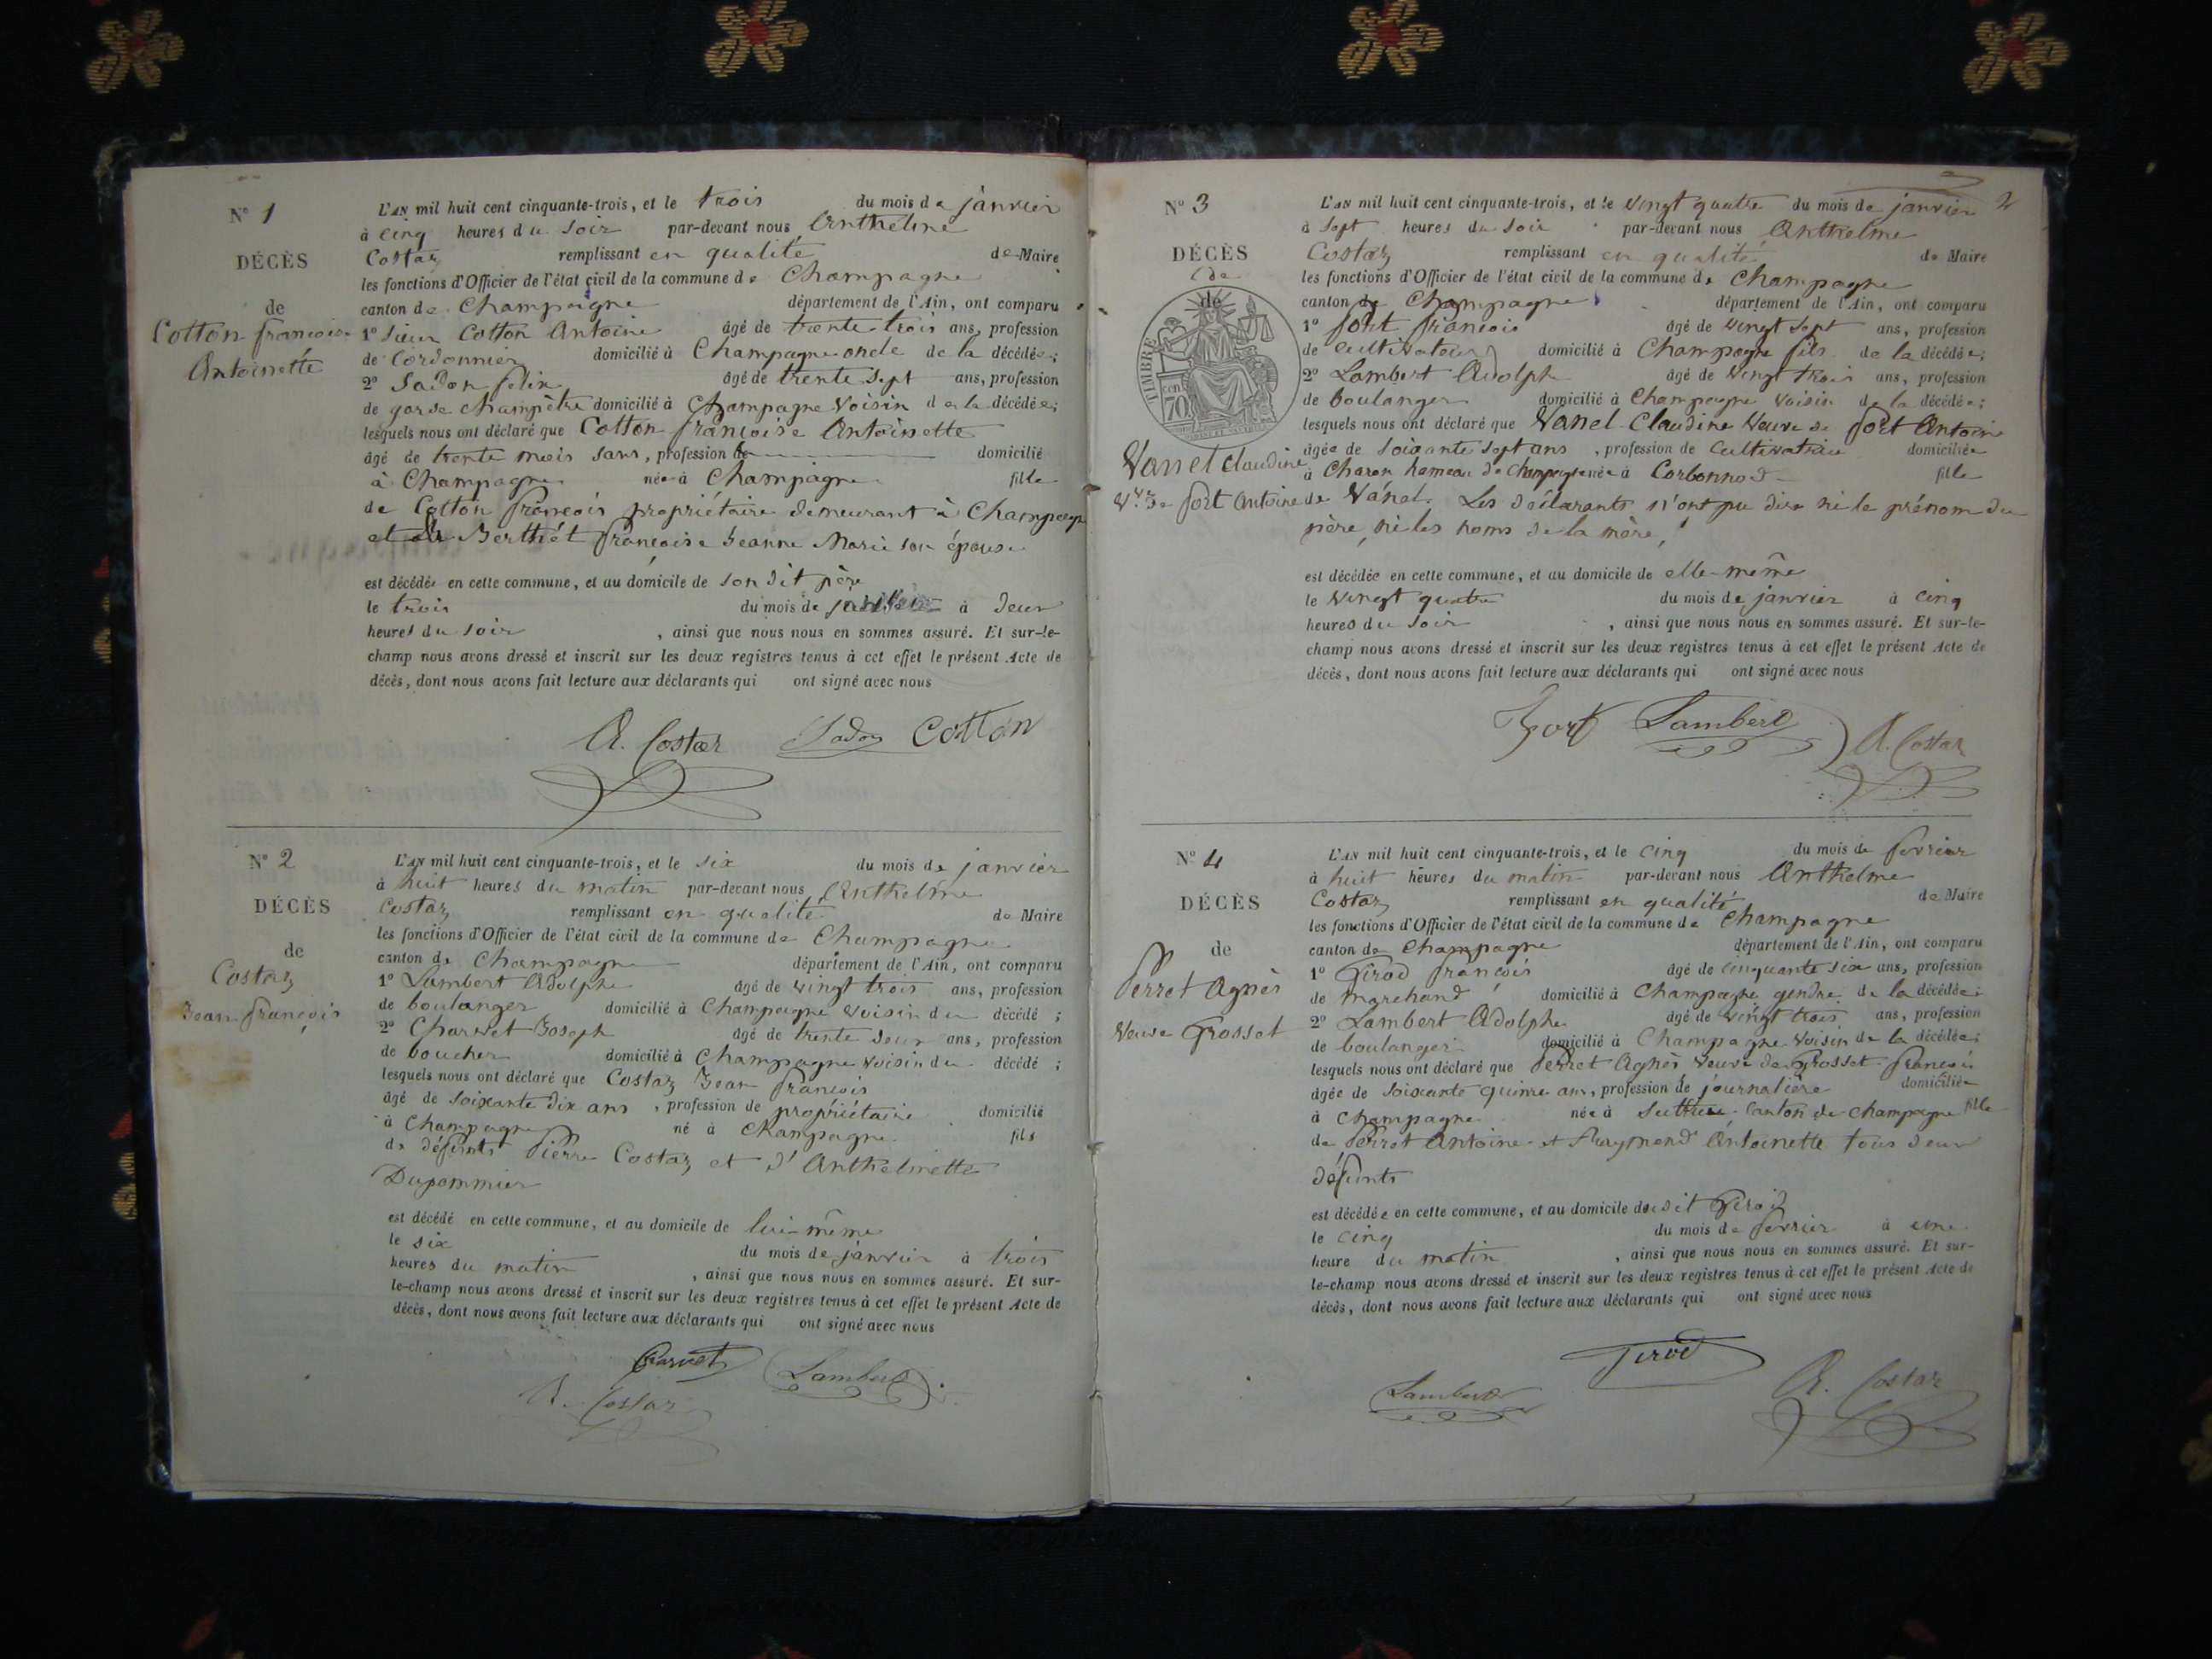 N° 1
DÉCÈS
de
Cotton françoise
Antoinette
L'AN mil huit cent cinquante-trois, et le trois du mois de janvier
à cinq heures du soir par-devant nous Anthelme
Costaz remplissant en qualité de Maire
les fonctions d'Officier de l'état civil de la commune de Champagne
canton de Champagne département de l'Ain, ont comparu
1° Sieur Cotton Antoine âgé de trente-trois ans, profession
de Cordonnier domicilié à Champagne oncle de la décédée;
2° Sadon âgé de trente sept ans, profession
de garde champêtre domicilié à Champagne voisin de la décédée;
lesquels nous ont déclaré que Cotton françoise Antoinette
âgé de trente mois sans, profession de domicilié
à Champagne née à Champagne fille
de Cotton françois propriétaire demeurant à Champagne
et Berthét françoise Jeanne Marie son épouse
est décédée en cette commune, et au domicile de son dit père
le trois du mois de janvier à deux
heures du soir, ainsi que nous nous en sommes assuré. Et sur-le-
champ nous avons dressé et inscrit sur les deux registres tenus à cet effet le présent Acte de
décès, dont nous avons fait lecture aux déclarants qui ont signé avec nous
A. Costaz Sadon Cotton
N° 2
DÉCÈS
de
Costaz
Jean françois
L'AN mil huit cent cinquante-trois, et le six du mois de janvier
à huit heures du matin par-devant nous Anthelme
Costaz remplissant en qualité de Maire
les fonctions d'Officier de l'état civil de la commune de Champagne
canton de Champagne département de l'Ain, ont comparu
1° Lambert Adolphe âgé de vingt trois ans, profession
de boulanger domicilié à Champagne voisin du décédé;
2° Charvet Joseph âgé de trente deux ans, profession
de boucher domicilié à Champagne voisin du décédé;
lesquels nous ont déclaré que Costaz Jean françois
âgé de soixante dix ans, profession de propriétaire domicilié
à Champagne né à Champagne fils
de défunts Pierre Costaz et d'Anthelmette
Dupommier
est décédé en cette commune, et au domicile de lui-même
le six du mois de janvier à trois
heures du matin, ainsi que nous nous en sommes assuré. Et sur-
le-champ nous avons dressé et inscrit sur les deux registres tenus à cet effet le présent Acte de
décès, dont nous avons fait lecture aux déclarants qui ont signé avec nous
Charvet Lambert
A. Costaz
2
N° 3
DÉCÈS
de
de
TIMBRE
70
Vanet Claudine
Vve de fort Antoine
L'AN mil huit cent cinquante-trois, et le vingt quatre du mois de janvier
à sept heures du soir par-devant nous Anthelme
Costaz remplissant en qualité de Maire
les fonctions d'Officier de l'état civil de la commune de Champagne
canton de Champagne département de l'Ain, ont comparu
1° fort françois âgé de vingt sept ans, profession
de cultivateur domicilié à Champagne fils de la décédée;
2° Lambert Adolph âgé de vingt trois ans, profession
de boulanger domicilié à Champagne voisin de la décédée;
lesquels nous ont déclaré que Vanel Claudine Veuve de fort Antoine
âgée de soixante sept ans, profession de cultivatrice domiciliée
à hameau de Champagne née à Corbonod fille
de Vanel. Les déclarants n'ont pu dire ni le prénom du
père, ni les noms de la mère,
est décédée en cette commune, et au domicile de elle-même
le vingt quatre du mois de janvier à cinq
heures du soir, ainsi que nous nous en sommes assuré. Et sur-le-
champ nous avons dressé et inscrit sur les deux registres tenus à cet effet le présent Acte de
décès, dont nous avons fait lecture aux déclarants qui ont signé avec nous
fort Lambert A. Costaz
N° 4
DÉCÈS
de
Perret Agnès
Veuve Grosset
L'AN mil huit cent cinquante-trois, et le cinq du mois de fevrier
à huit heures du matin par-devant nous Anthelme
Costaz remplissant en qualité de Maire
les fonctions d'Officier de l'état civil de la commune de Champagne
canton de Champagne département de l'Ain, ont comparu
1° Girod françois âgé de cinquante six ans, profession
de marchand domicilié à Champagne gendre de la décédée;
2° Lambert Adolphe âgé de vingt trois ans, profession
de boulanger domicilié à Champagne voisin de la décédée;
lesquels nous ont déclaré que Perret Agnès veuve de Grosset françois
âgée de soixante quinze ans, profession de journalière domiciliée
à Champagne née à Sutrieu Canton de Champagne fille
de Perret Antoine et Aurymond Antoinette tous deux
défunts
est décédée en cette commune, et au domicile du dit Girod
le cinq du mois de fevrier à une
heure du matin, ainsi que nous nous en sommes assuré. Et sur-
le-champ nous avons dressé et inscrit sur les deux registres tenus à cet effet le présent Acte de
décès, dont nous avons fait lecture aux déclarants qui ont signé avec nous
Girod
Lambert A. Costaz